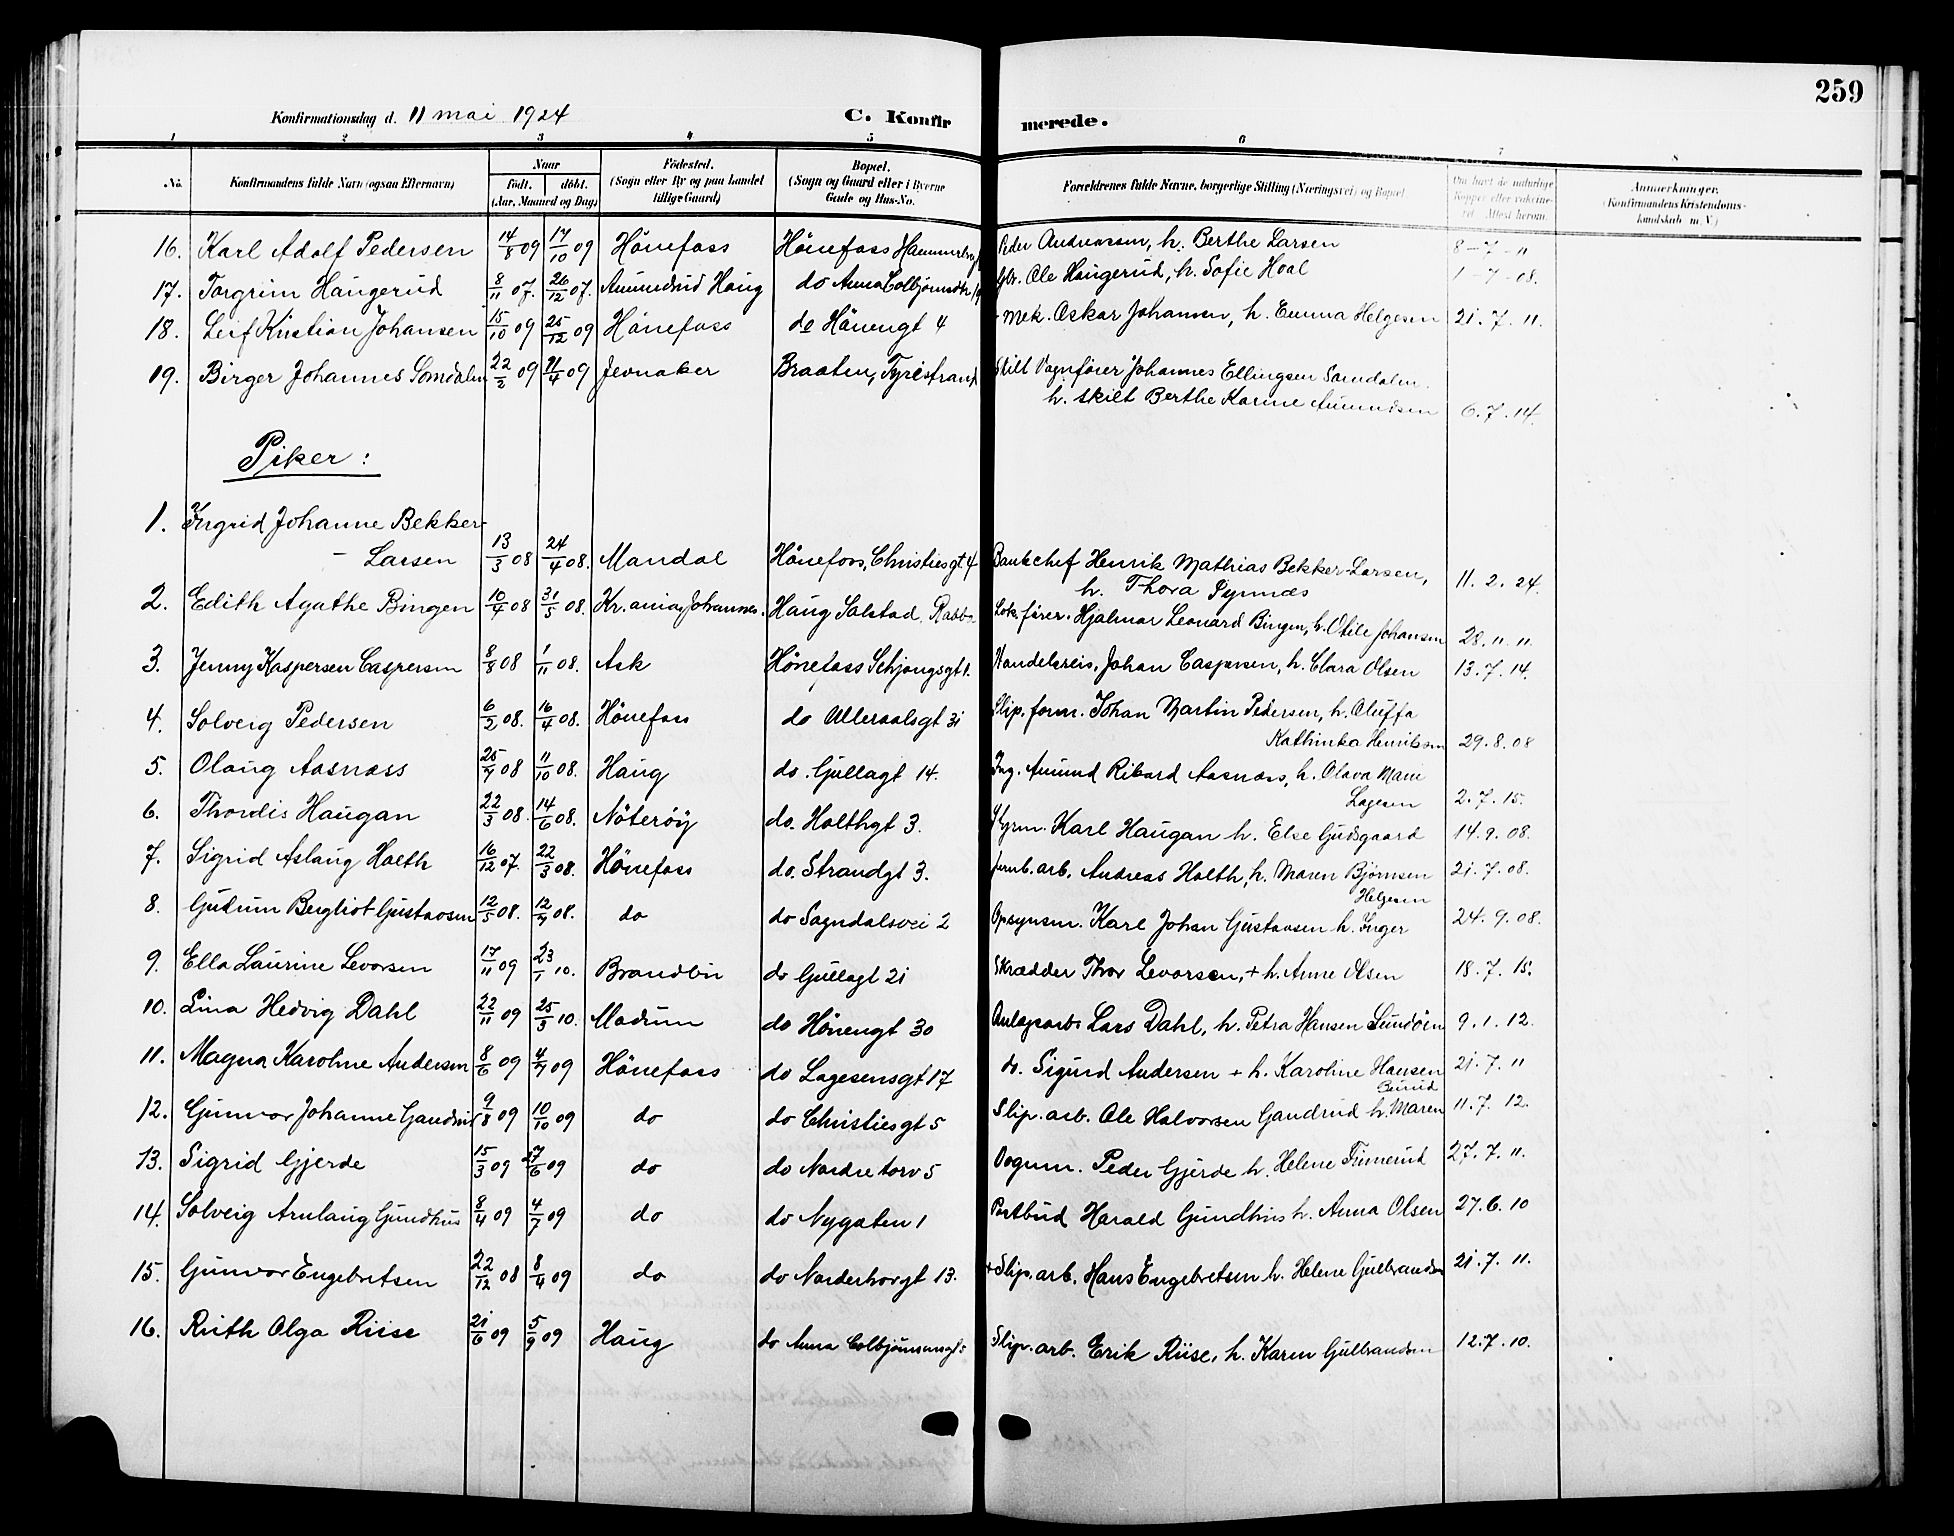 259
Konfirmationsdag d. 11 mai 1924 C. Konfirmerede.
1 2 3 4 5 6 7 8
No. Konfirmandens fulde Navn (ogsaa Efternavn) Naar født. døbt. (Aar, Maaned og Dag) Fødested. (Sogn eller By og paa Landet tillige Gaard) Bopæl. (Sogn og Gaard eller i Byerne Gade og Hus-No. Forældrenes fulde Navne, borgerlige Stilling (Næringsvei) og Bopæl Om havt de naturlige Kopper eller vaccineret. Attest herom. Anmærkninger. (Konfirmandens Kristendomskundskab m. V.)
16. Karl Adolf Pedersen 14/8 09 17/10 09 Hönefoss Hönefoss Peder Andreassen, h. Berthe Larsen 8-7-11
17. Torgrim Haugerud 8/11 07. 26/12 07. Aamundrud Haug do Anna Colbjørnsdtr Ole Haugerud, h. Sofie Hoal 1-7-08.
18. Leif Kristian Johansen 15/10 09 25/12 09 Hönefoss do Hönengt 4 Mek. Oskar Johansen, h. Emma Helgesen 21.7.11.
19. Birger Johannes Somdalen 22/2 09 11/4 09 Jevnaker Braaten, Tyristrand Skilt Vognfører Johannes Ellingsen Somdalen
h. skilt Berthe Karine Amundsen 6.7.14.
Piker:
1. Ingrid Johanne Bekker-
- Larsen 13/3 08 24/4 08. Mandal Hönefoss, Christiesgt 4 Bankchef Henrik Mathias Bekker-Larsen, 11.2.24.
h. Thora Synnæs
2. Edith Agathe Bingen 10/4 08 31/5 08. Kr.ania, Johannes. Haug Solstad, Rabba Lok.fører. Hjalmar Leonard Bingen, h. Otile Johansen 28.11.11.
3. Jenny Kaspersen Caspersen 8/9 08 1/11 08. Ask Hönefoss Schjongsgt 1. Handelsreis. Johan Caspersen, h. Clara Olsen 13.7.14.
4. Solveig Pedersen 6/2 08. 16/4 08. Hönefoss do Ulleraalsgt 31 Slip.form. Johan Martin Pedersen, h. Oluffa
Kathinka Henriksen 29.8.08
5. Olaug Aasnæss 25/7 08 11/10 08. Haug do. Gullagt 14. Ing. Amund Rikard Aasnæss, h. Olava Marie
Lagesen 2.7.15.
6. Thordis Haugan 22/3 08. 14/6 08. Nöterøy do. Holthgt 3. Styrm. Karl Haugan h. Else Gudsgaard 14.9.08.
7. Sigrid Aslaug Holth 16/12 07. 22/3 08. Hönefoss do. Strandgt 3. Jernb.arb. Andreas Holth, h. Maren Bjørnsen 21.7.08.
Helgesen
8. Gudrun Bergliot Gustavsen 12/5 08. 12/7 08. do do Sogndalsvei 2 Opsynsm. Karl Johan Gustavsen h. Inger 24.9.08.
9. Ella Laurine Levorsen 17/11 09 23/1 10. Brandbu do Gullagt 21 Skrædder Thor Levorsen, + h. Anne Olsen 18.7.15.
10. Lina Hedvig Dahl 22/11 09 25/3 10. Modum do Hönengt 30 Anlægsarb. Lars Dahl, h. Petra Hansen Sundöen 9.1.12.
11. Magna Karoline Andersen 8/6 09 4/7 09 Hönefoss do Lagesensgt 17 do. Sigurd Andersen + h. Karoline Hansen 21.7.11
12. Gunvor Johanne Gandrud 9/8 09 10/10 09 do do Christiesgt 5 Slip.arb. Ole Halvorsen Gandrud h. Maren 11.7.12.
13. Sigrid Gjerde 15/3 09 27/6 09 do do Nordre torv 5 Vognm. Peder Gjerde h. Helene Finnerud 27.7.11.
14. Solveig Arnlaug Gundhus 8/4 09 4/7 09 do do Nygaten 1 Postbud Harald Gundhus h. Anna Olsen 27.6.10
15. Gunvor Engebretsen 22/12 08 8/4 09 do do Norderhovgt 13. + Slip.arb. Hans Engebretsen h. Helene Gulbrandsen 21.7.11.
16. Ruth Olga Riise 21/6 09 5/9 09 Haug do Anna Colbjörnsensgt Slip.arb. Erik Riise, h. Karen Gulbrandsen 12.7.10.